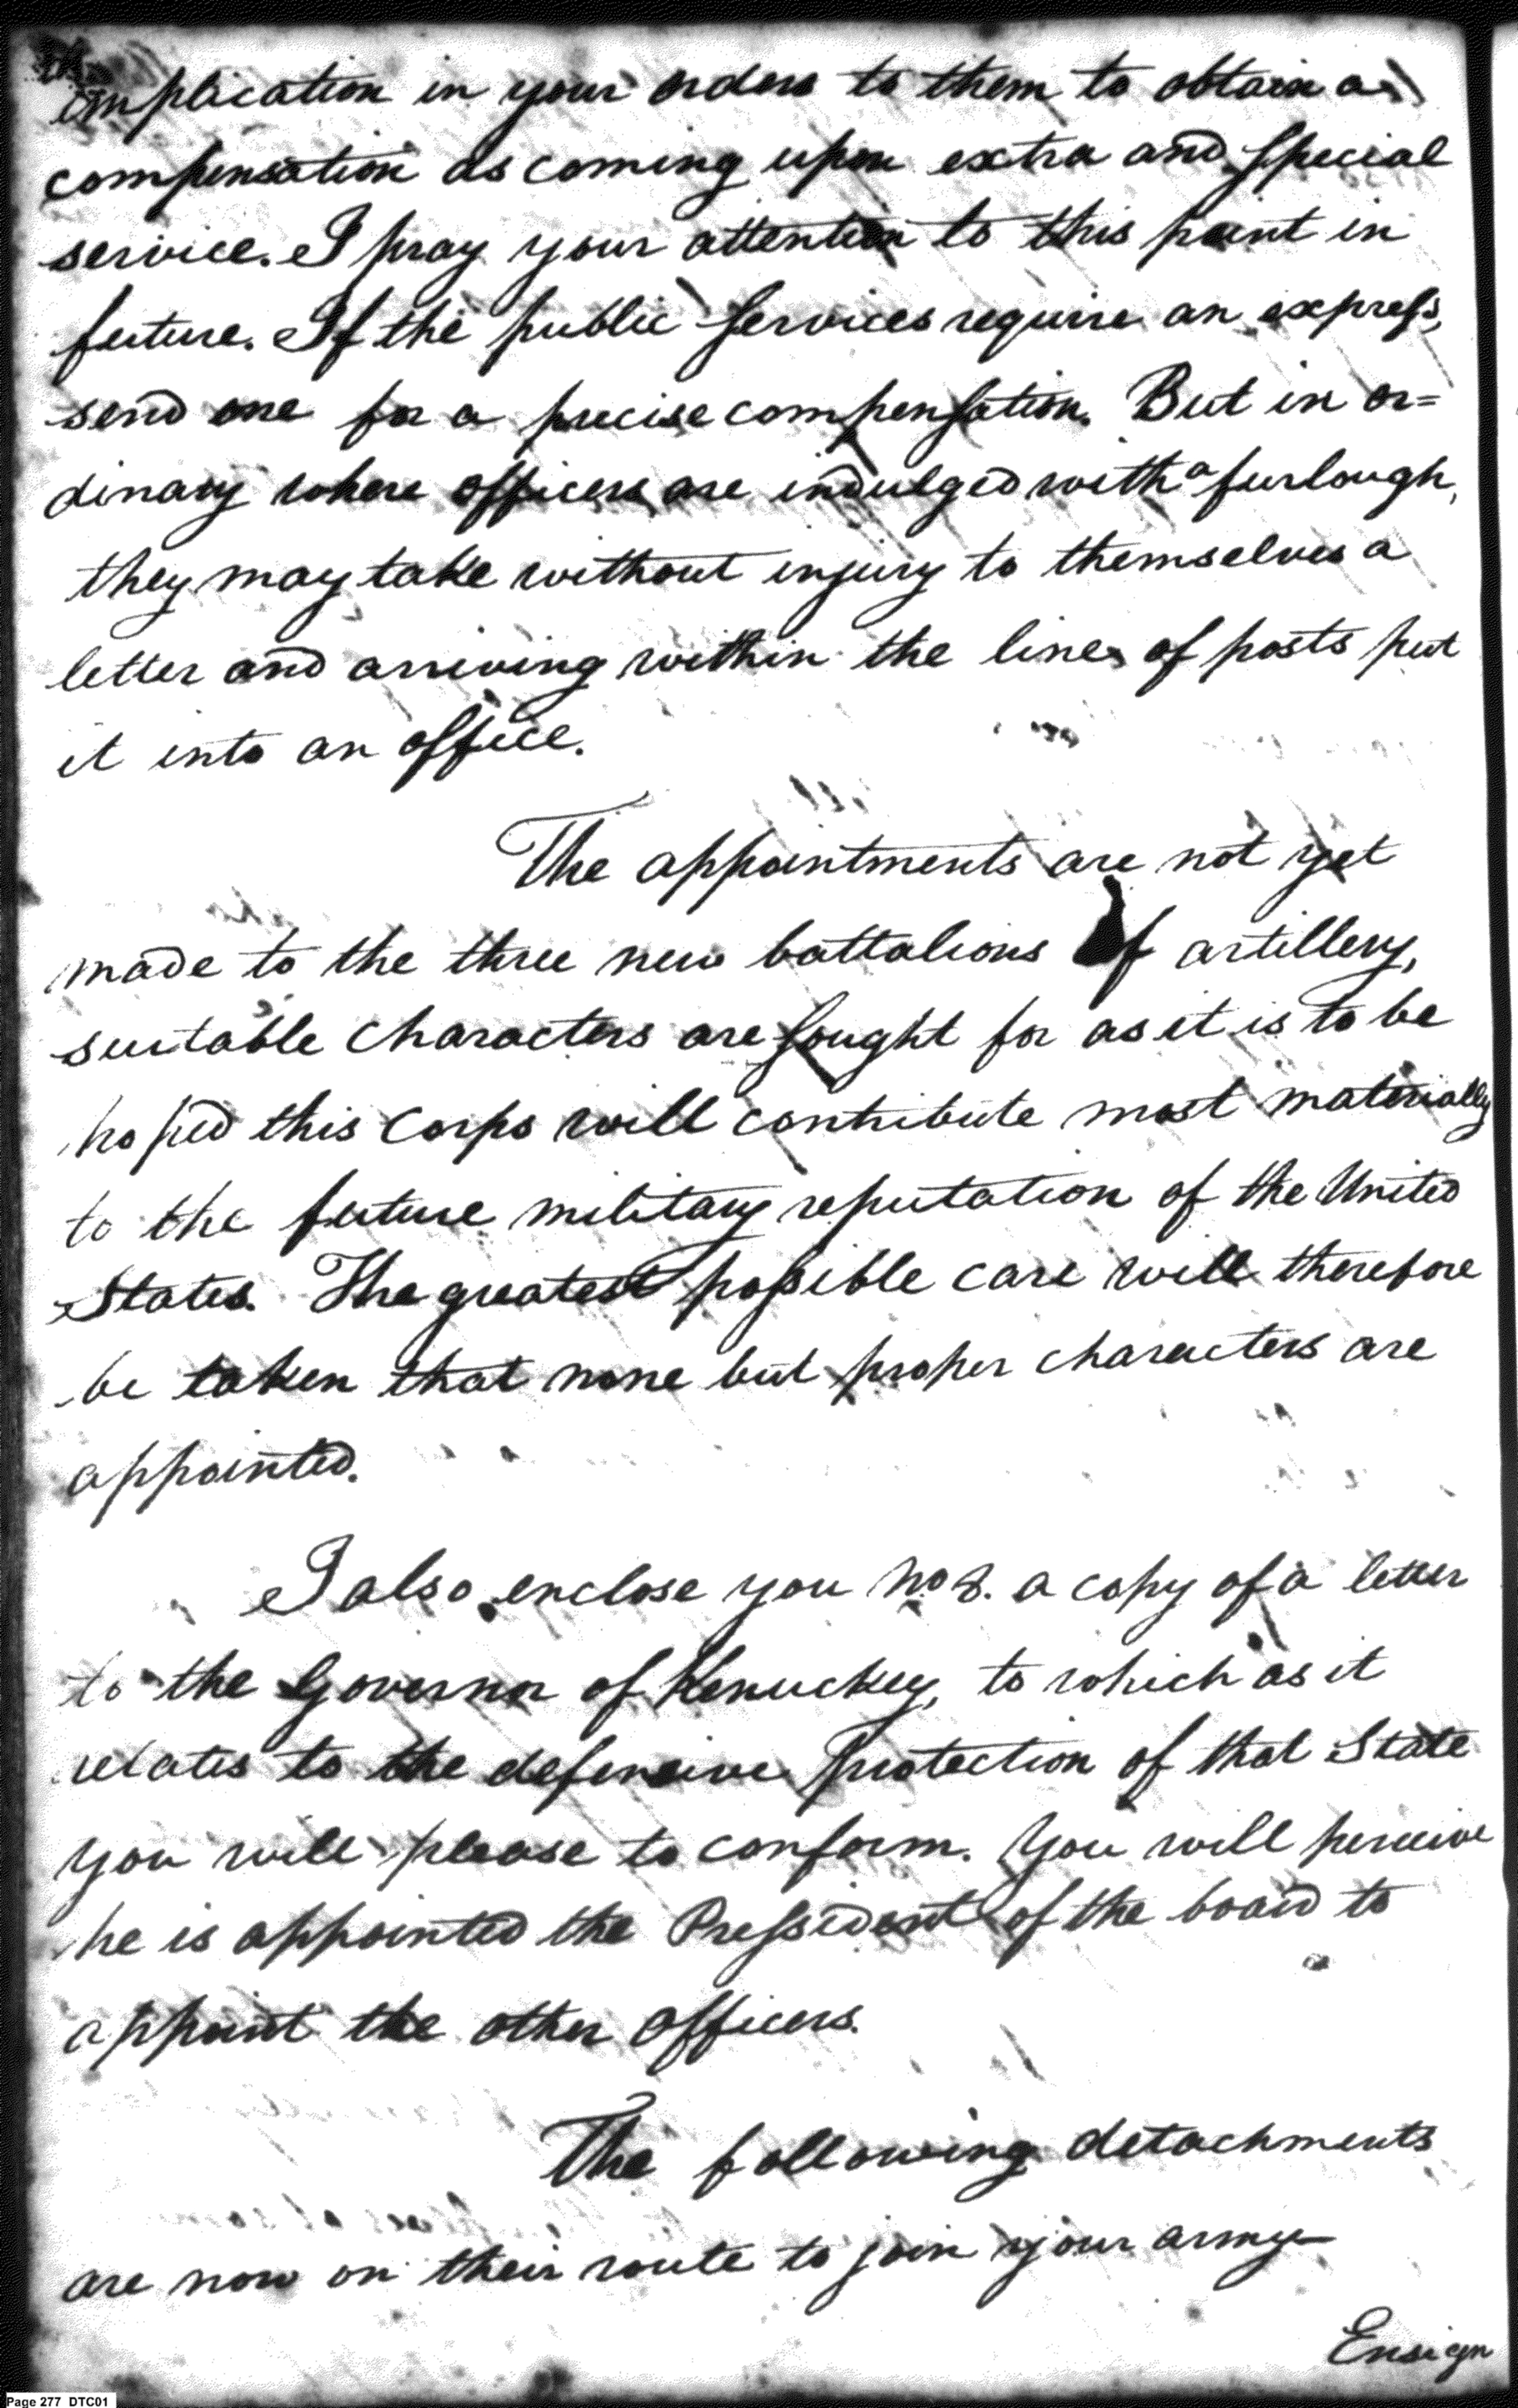 implication in your orders to them to obtain a
compensation as coming upon extra and special
service. I pray your attention to this point in
future. If the public services require an express,
send one for a precise compensation. But in or=
dinary where officers are indulged with a furlough,
they may take without injury to themselves a
letter and arriving within the lines of posts put
it into an office.
The appointments are not yet
made to the three new battalions of artillery,
suitable characters are sought for as it is to be
hoped this Corps will contribute most materially
to the future military reputation of the United
States. The greatest possible care will therefore
be taken that none but proper characters are
appointed.
I also enclose you No 8. a copy of a letter
to the Governor of Kenuckey, to which as it
relates to the defensive Protection of that State
you will please to conform. You will perceive
he is appointed the Pressident of the board to
appoint the other officers.
The following detachments
are now on their route to join your army
Ensign
Page 277 DTC01